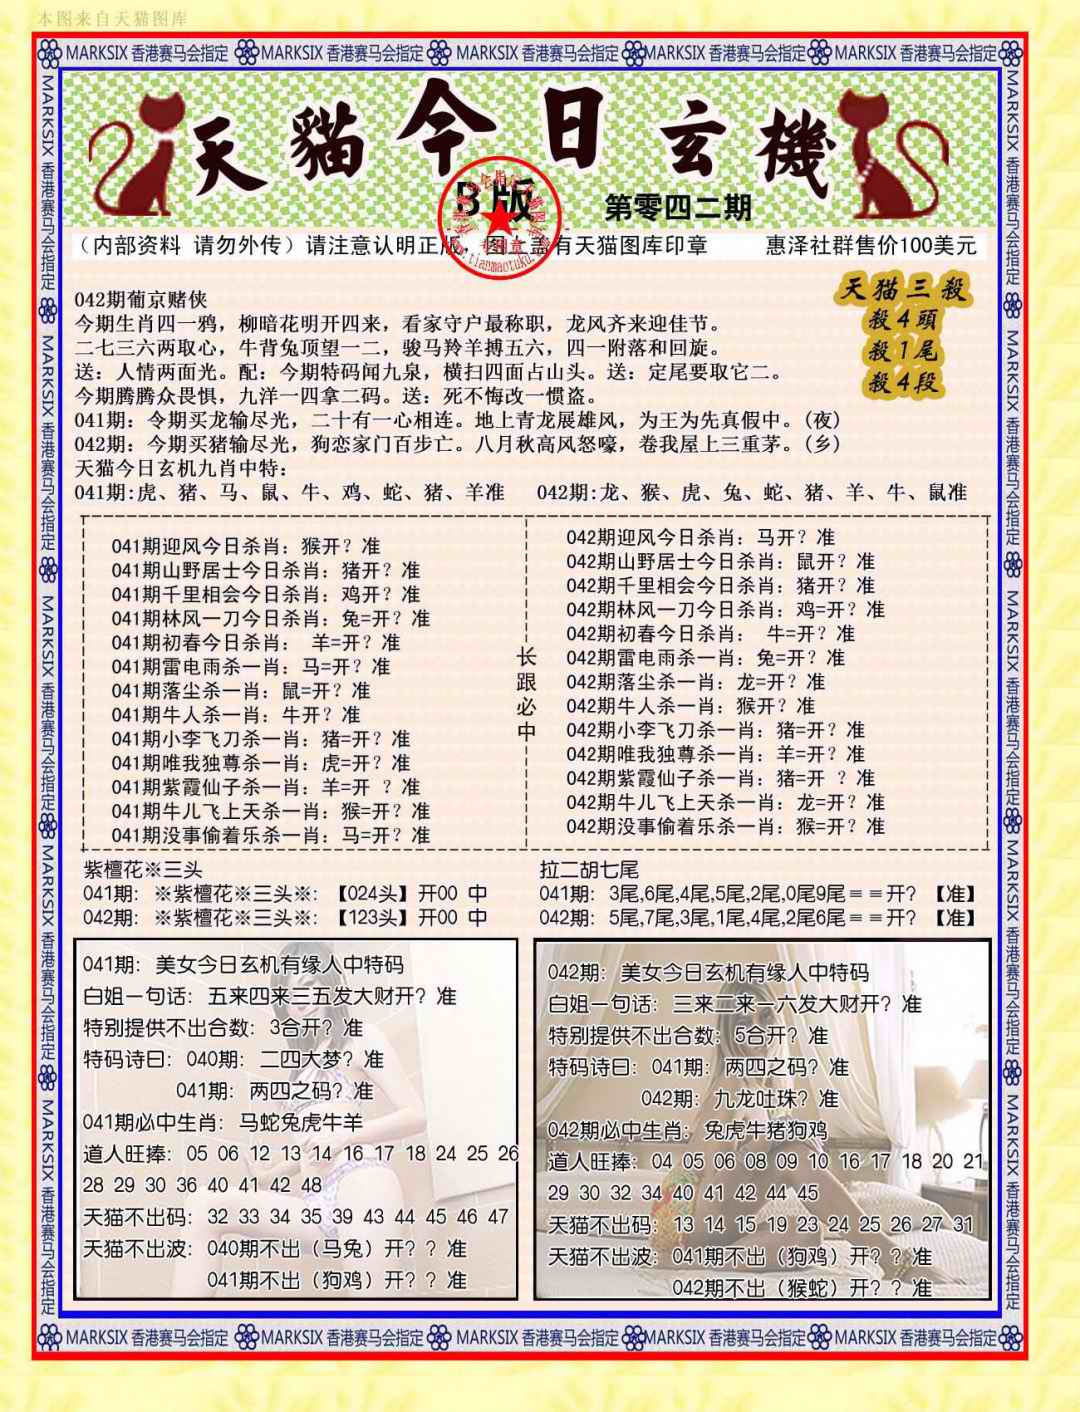 本图来自天猫图库
MARKSIX 香港赛马会指定 MARKSIX 香港赛马会指定 MARKSIX 香港赛马会指定 MARKSIX 香港赛马会指定 MARKSIX 香港赛马会指定
天猫今日玄機
B版
第零四二期
(内部资料 请勿外传)请注意认明正版,图上盖有天猫图库印章 惠泽社群售价100美元
天猫三殺
殺4頭
殺1尾
殺4段
042期葡京赌侠
今期生肖四一鸦,柳暗花明开四来,看家守户最称职,龙风齐来迎佳节。
二七三六两取心,牛背兔顶望一二,骏马羚羊搏五六,四一附落和回旋。
送:人情两面光。配:今期特码闻九泉,横扫四面占山头。送:定尾要取它二。
今期腾腾众畏惧,九洋一四拿二码。送:死不悔改一惯盗。
041期:令期买龙输尽光,二十有一心相连。地上青龙展雄风,为王为先真假中。(夜)
042期:今期买猪输尽光,狗恋家门百步亡。八月秋高风怒嚎,卷我屋上三重茅。(乡)
天猫今日玄机九肖中特:
041期:虎、猪、马、鼠、牛、鸡、蛇、猪、羊准 042期:龙、猴、虎、兔、蛇、猪、羊、牛、鼠准
041期迎风今日杀肖:猴开?准
041期山野居士今日杀肖:猪开?准
041期千里相会今日杀肖:鸡开?准
041期林风一刀今日杀肖:兔=开?准
041期初春今日杀肖: 羊=开?准
041期雷电雨杀一肖:马=开?准
041期落尘杀一肖:鼠=开?准
041期牛人杀一肖:牛开?准
041期小李飞刀杀一肖:猪=开?准
041期唯我独尊杀一肖:虎=开?准
041期紫霞仙子杀一肖:羊=开 ?准
041期牛儿飞上天杀一肖:猴=开?准
041期没事偷着乐杀一肖:马=开?准
长跟必中
042期迎风今日杀肖:马开?准
042期山野居士今日杀肖:鼠开?准
042期千里相会今日杀肖:猪开?准
042期林风一刀今日杀肖:鸡=开?准
042期初春今日杀肖: 牛=开?准
042期雷电雨杀一肖:兔=开?准
042期落尘杀一肖:龙=开?准
042期牛人杀一肖:猴开?准
042期小李飞刀杀一肖:猪=开?准
042期唯我独尊杀一肖:羊=开?准
042期紫霞仙子杀一肖:猪=开 ?准
042期牛儿飞上天杀一肖:龙=开?准
042期没事偷着乐杀一肖:猴=开?准
紫檀花※三头
041期: ※紫檀花※三头※: 【024头】开00 中
042期: ※紫檀花※三头※: 【123头】开00 中
拉二胡七尾
041期: 3尾,6尾,4尾,5尾,2尾,0尾9尾==开? 【准】
042期: 5尾,7尾,3尾,1尾,4尾,2尾6尾==开? 【准】
041期:美女今日玄机有缘人中特码
白姐一句话:五来四来三五发大财开?准
特别提供不出合数:3合开?准
特码诗曰:040期:二四大梦?准
041期:两四之码?准
041期必中生肖:马蛇兔虎牛羊
道人旺捧:05 06 12 13 14 16 17 18 24 25 26
28 29 30 36 40 41 42 48
天猫不出码:32 33 34 35 39 43 44 45 46 47
天猫不出波:040期不出(马兔)开??准
041期不出(狗鸡)开??准
042期:美女今日玄机有缘人中特码
白姐一句话:三来二来一六发大财开?准
特别提供不出合数:5合开?准
特码诗曰:041期:两四之码?准
042期:九龙吐珠?准
042期必中生肖:兔虎牛猪狗鸡
道人旺捧:04 05 06 08 09 10 16 17 18 20 21
29 30 32 34 40 41 42 44 45
天猫不出码:13 14 15 19 23 24 25 26 27 31
天猫不出波:041期不出(狗鸡)开??准
042期不出(猴蛇)开??准
MARKSIX 香港赛马会指定 MARKSIX 香港赛马会指定 MARKSIX 香港赛马会指定 MARKSIX 香港赛马会指定 MARKSIX 香港赛马会指定